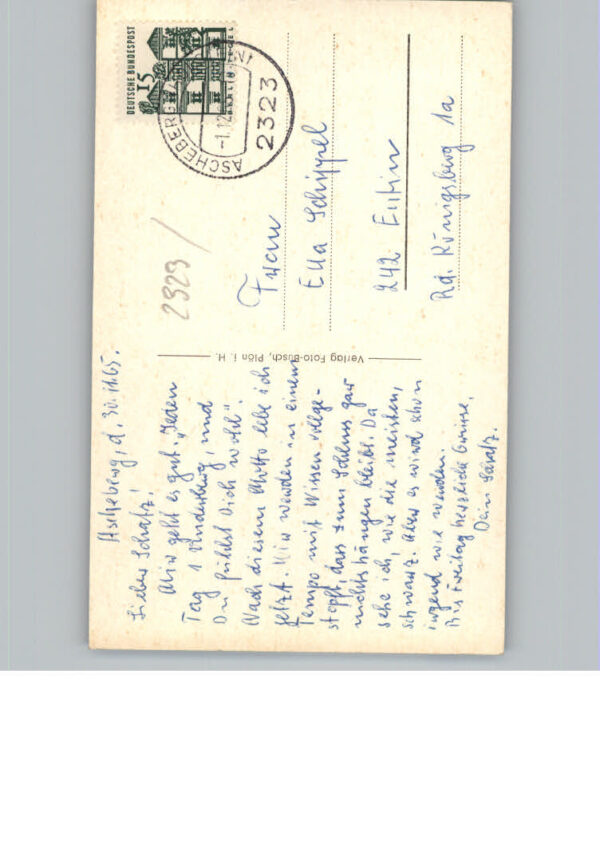 Ascheberg, d. 30.11.65.
Lieber Schatz!
Mir geht es gut. „Jeden
Tag 1 Underberg, und
Du fühlst Dich wohl".
Nach diesem Motto lebe ich
jetzt. Wir werden in einem
Tempo mit Wissen vollge-
stopft, dass zum Schluss gar
nichts hängen bleibt. Da
sehe ich, wie die meisten,
schwarz. Aber es wird schon
irgend wie werden.
Bis Freitag herzliche Grüsse,
Dein Schatz.
Verlag Foto-Busch, Plön i. H.
DEUTSCHE BUNDESPOST
15
ASCHEBERG
2323
2323
Frau
Ella Schippel
242 Eutin
Rd. Königsberg 1a